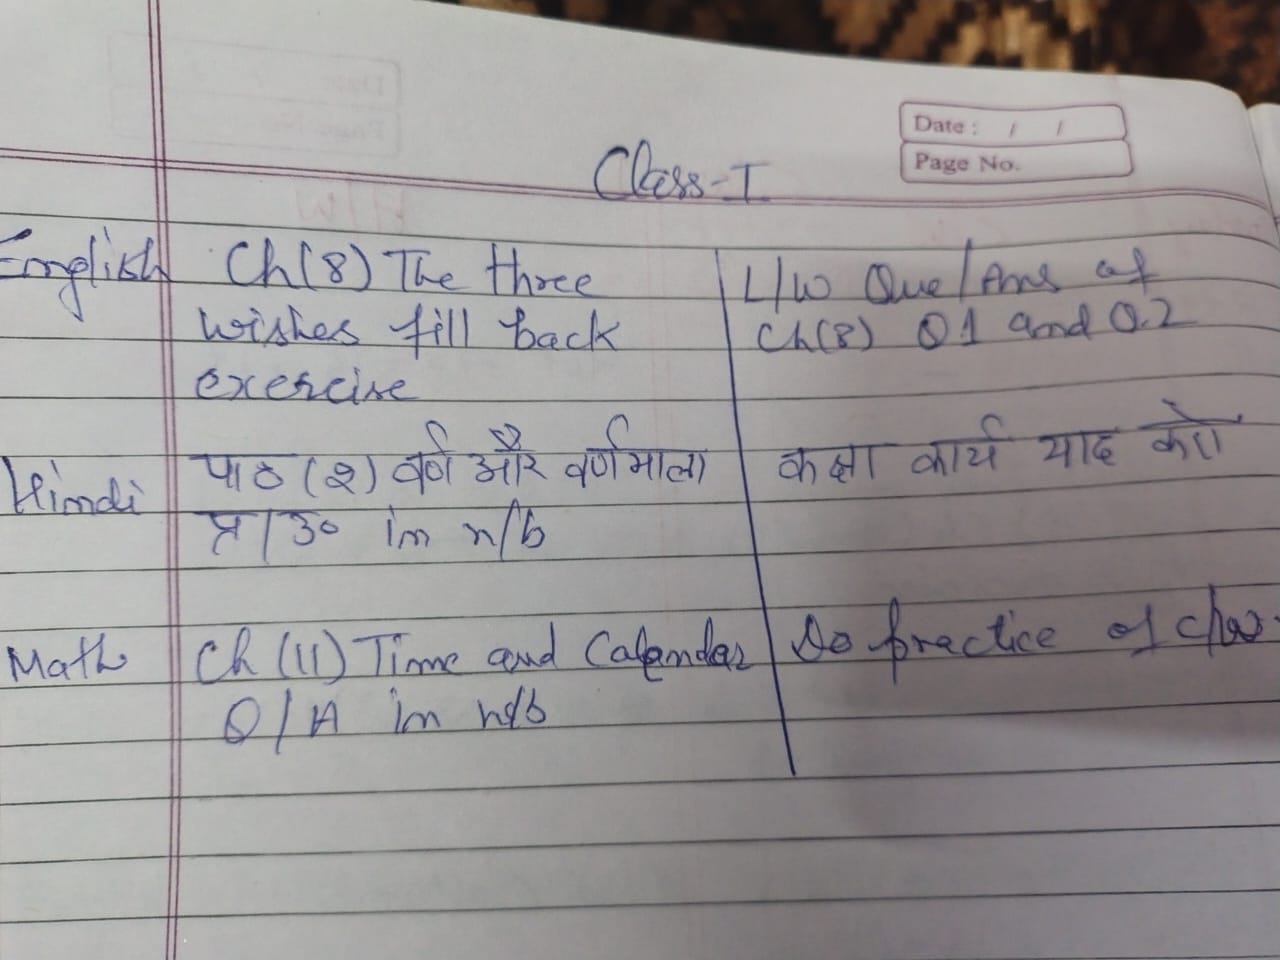 Date : / /
Page No.
Class-I
English Ch(8) The three
wishes fill back
exercise
L/W Que/Ans of
Ch(8) Q1 and Q.2
Hindi पाठ (२) वर्ण और वर्णमाला
प्र/उ० in n/b
कक्षा कार्य याद करो
Math Ch (11) Time and Calendar
Q/A in n/b
Do practice of